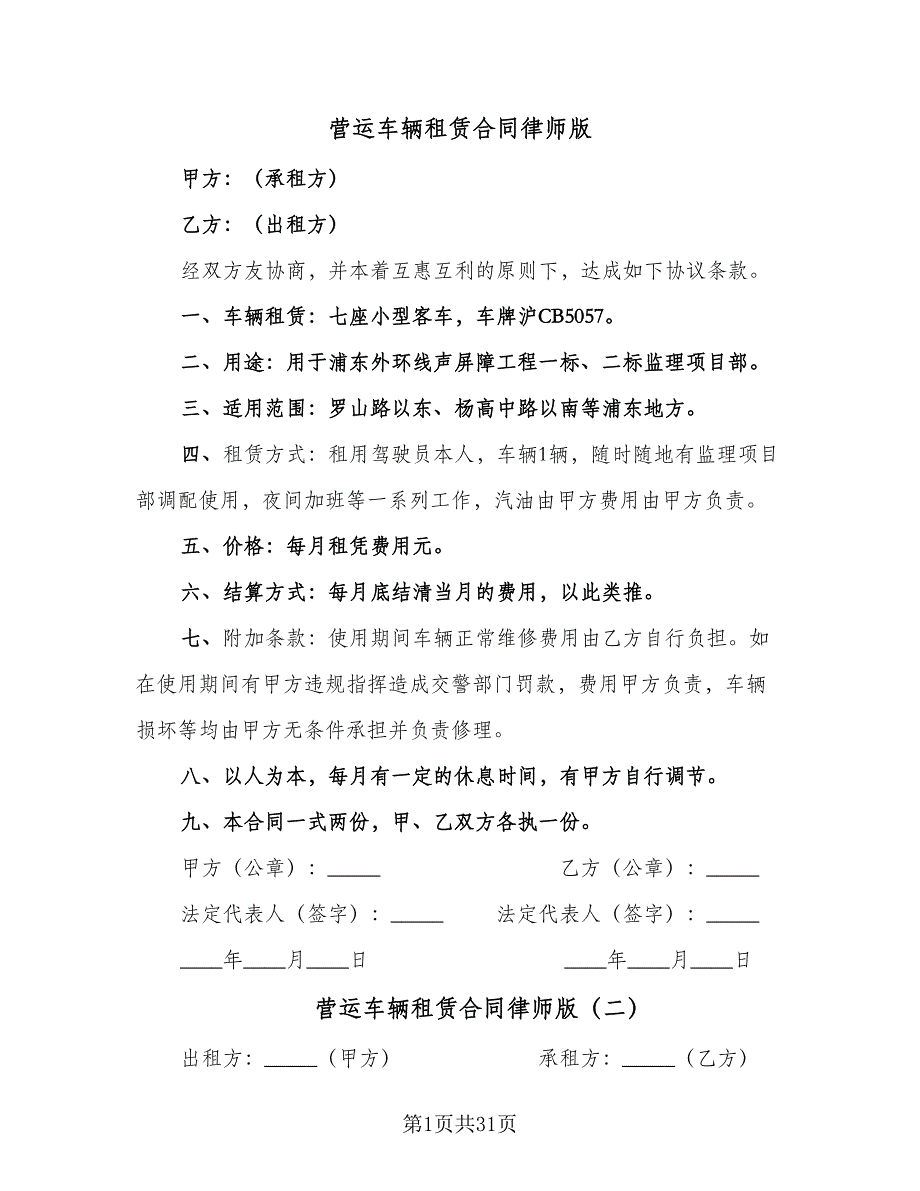 营运车辆租赁合同律师版
甲方：（承租方）
乙方：（出租方）
经双方友协商，并本着互惠互利的原则下，达成如下协议条款。
一、车辆租赁：七座小型客车，车牌沪CB5057。
二、用途：用于浦东外环线声屏障工程一标、二标监理项目部。
三、适用范围：罗山路以东、杨高中路以南等浦东地方。
四、租赁方式：租用驾驶员本人，车辆1辆，随时随地有监理项目
部调配使用，夜间加班等一系列工作，汽油由甲方费用由甲方负责。
五、价格：每月租凭费用元。
六、结算方式：每月底结清当月的费用，以此类推。
七、附加条款：使用期间车辆正常维修费用由乙方自行负担。如
在使用期间有甲方违规指挥造成交警部门罚款，费用甲方负责，车辆
损坏等均由甲方无条件承担并负责修理。
八、以人为本，每月有一定的休息时间，有甲方自行调节。
九、本合同一式两份，甲、乙双方各执一份。
甲方（公章）：_____ 乙方（公章）：_____
法定代表人（签字）：_____ 法定代表人（签字）：_____
____年____月____日 ____年____月____日
营运车辆租赁合同律师版（二）
出租方：_____（甲方） 承租方：_____（乙方）
第1页共31页